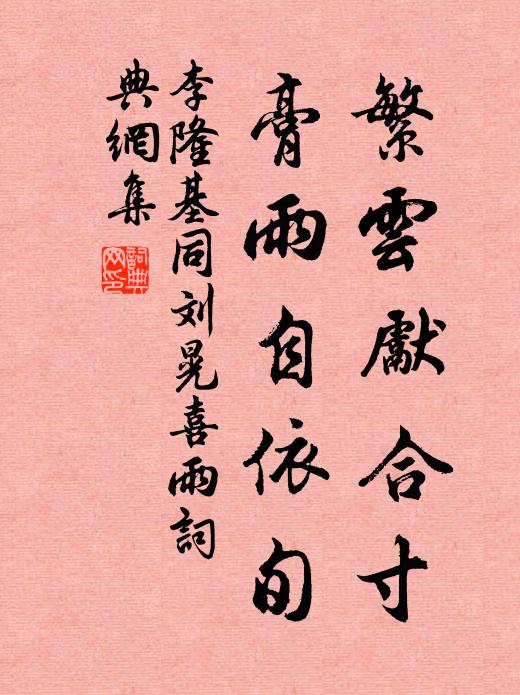 繁雲獻合寸
膏雨自依旬
李隆基同刘晃喜雨詞
典網集
詞典
网印